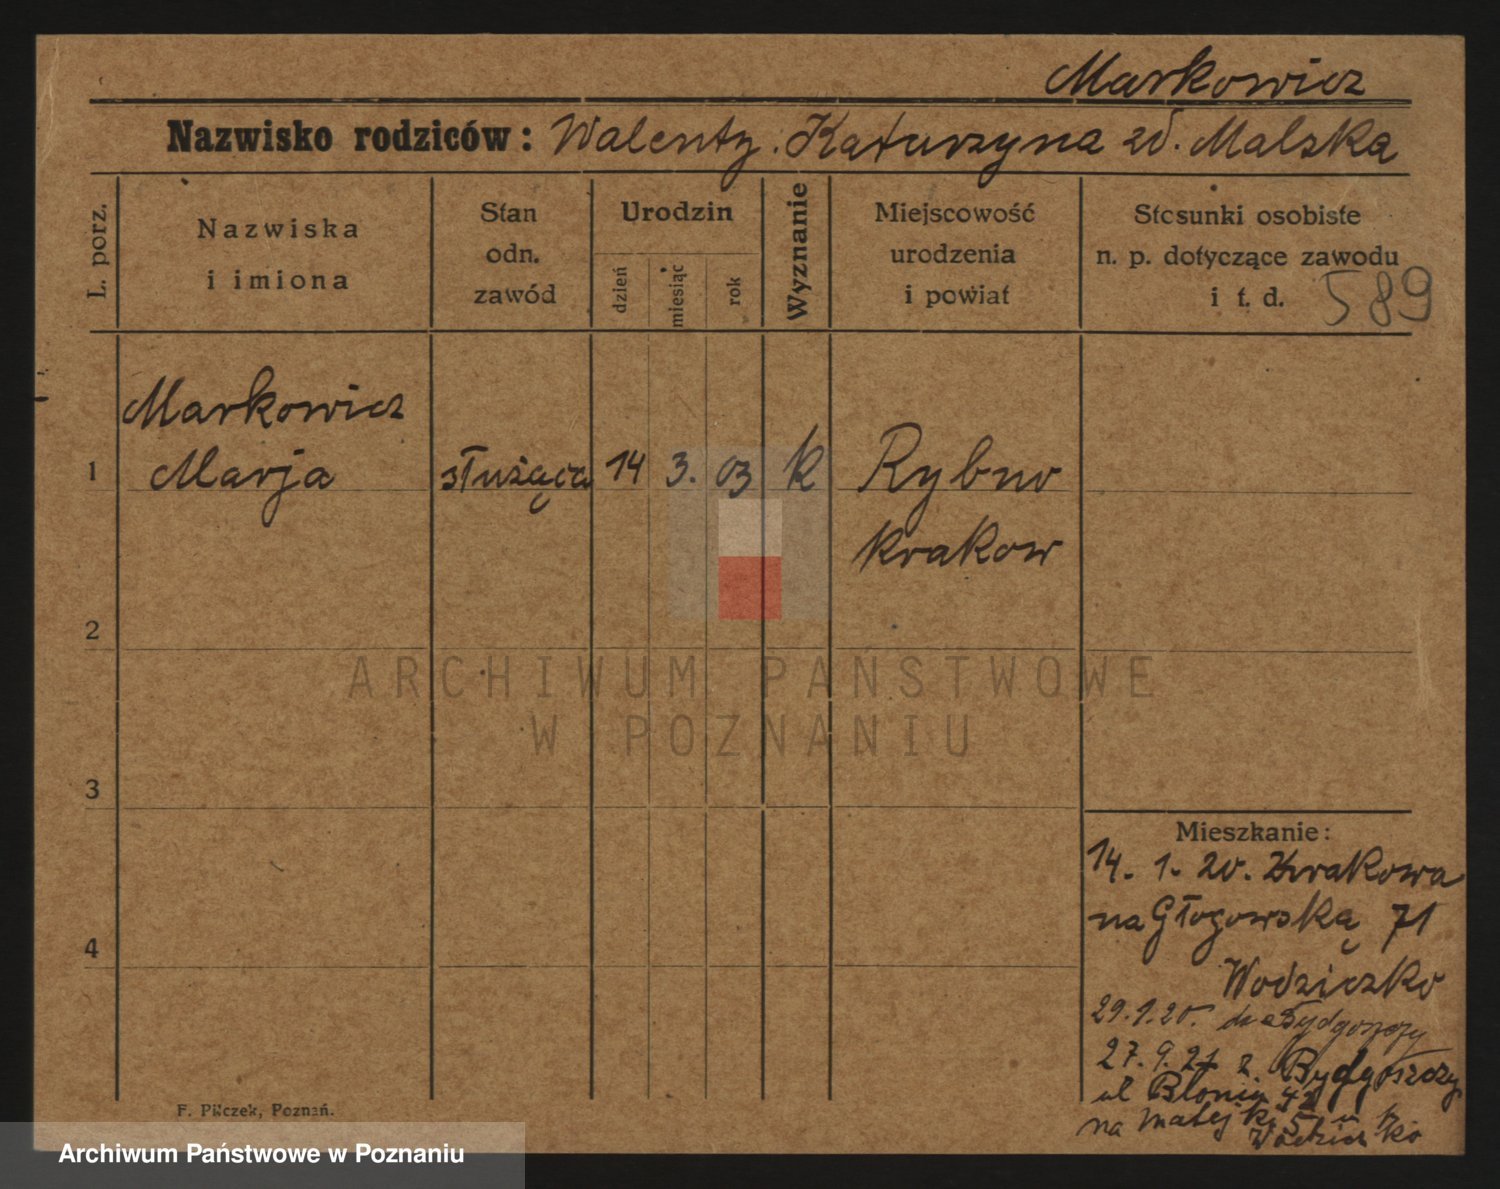 Markowicz
Nazwisko rodziców: Walenty. Katarzyna zd. Malska
L. porz.
Nazwiska
i imiona
Stan
odn.
zawód
Urodzin
dzień
miesiąc
rok
Wyznanie
Miejscowość
urodzenia
i powiat
Stosunki osobiste
n. p. dotyczące zawodu
i t. d.
589
Markowicz
1 Marja służąca 14 3. 03 k Rybno
Krakow
2
ARCHIWUM PAŃSTWOWE
W POZNANIU
3
Mieszkanie:
14. 1. 20. z Krakowa
na Głogowską 71
4
Wodziczko
29.1.20. do Bydgoszczy
27.9.21 z Bydgoszczy
ul Błonia
na Matejki 5 u
Wodziczko
F. Pilczek, Poznań.
Archiwum Państwowe w Poznaniu